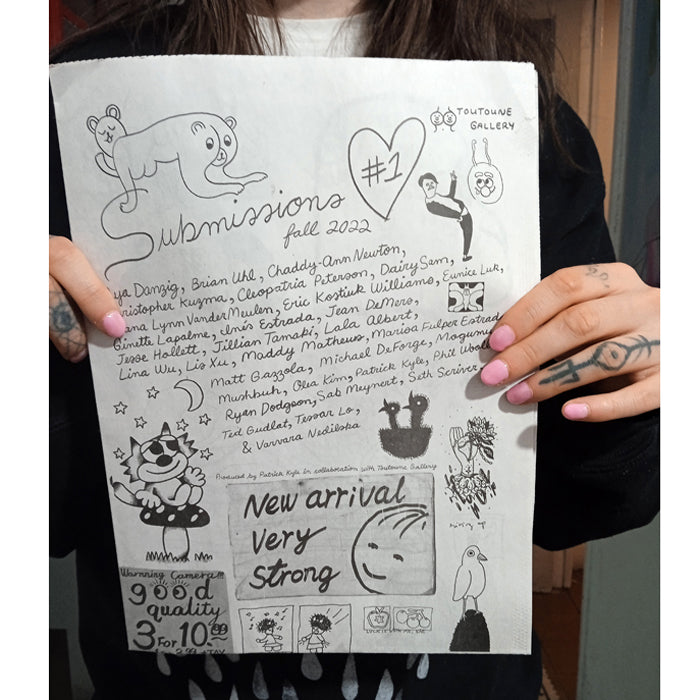 TOUTOUNE
GALLERY
#1
Submissions
fall 2022
ya Danzig, Brian Uhl, Chaddy-Ann Newton,
ristopher Kuzma, Cleopatria Peterson, Dairy Sam,
ana Lynn VanderMeulen, Eric Kostiuk Williams, Eunice Luk,
Ginette Lapalme, Inés Estrada, Jean DeMers,
Jesse Hallett, Jillian Tamaki, Lala Albert,
Lina Wu, Lis Xu, Maddy Mathews, Marisa Fulper Estrad
Matt Gazzola, Michael DeForge,
Mushbuh, Olea Kim, Patrick Kyle, Phil
Ryan Dodgson, Sab Meynert, Seth Scriver,
Ted Gudlat, Tessar Lo,
& Varvara Nedilska
Produced by Patrick Kyle in collaboration with Toutoune Gallery
New arrival
Very
Strong
rising up
Warnning Camera!!!
good
quality
3 For 10.99